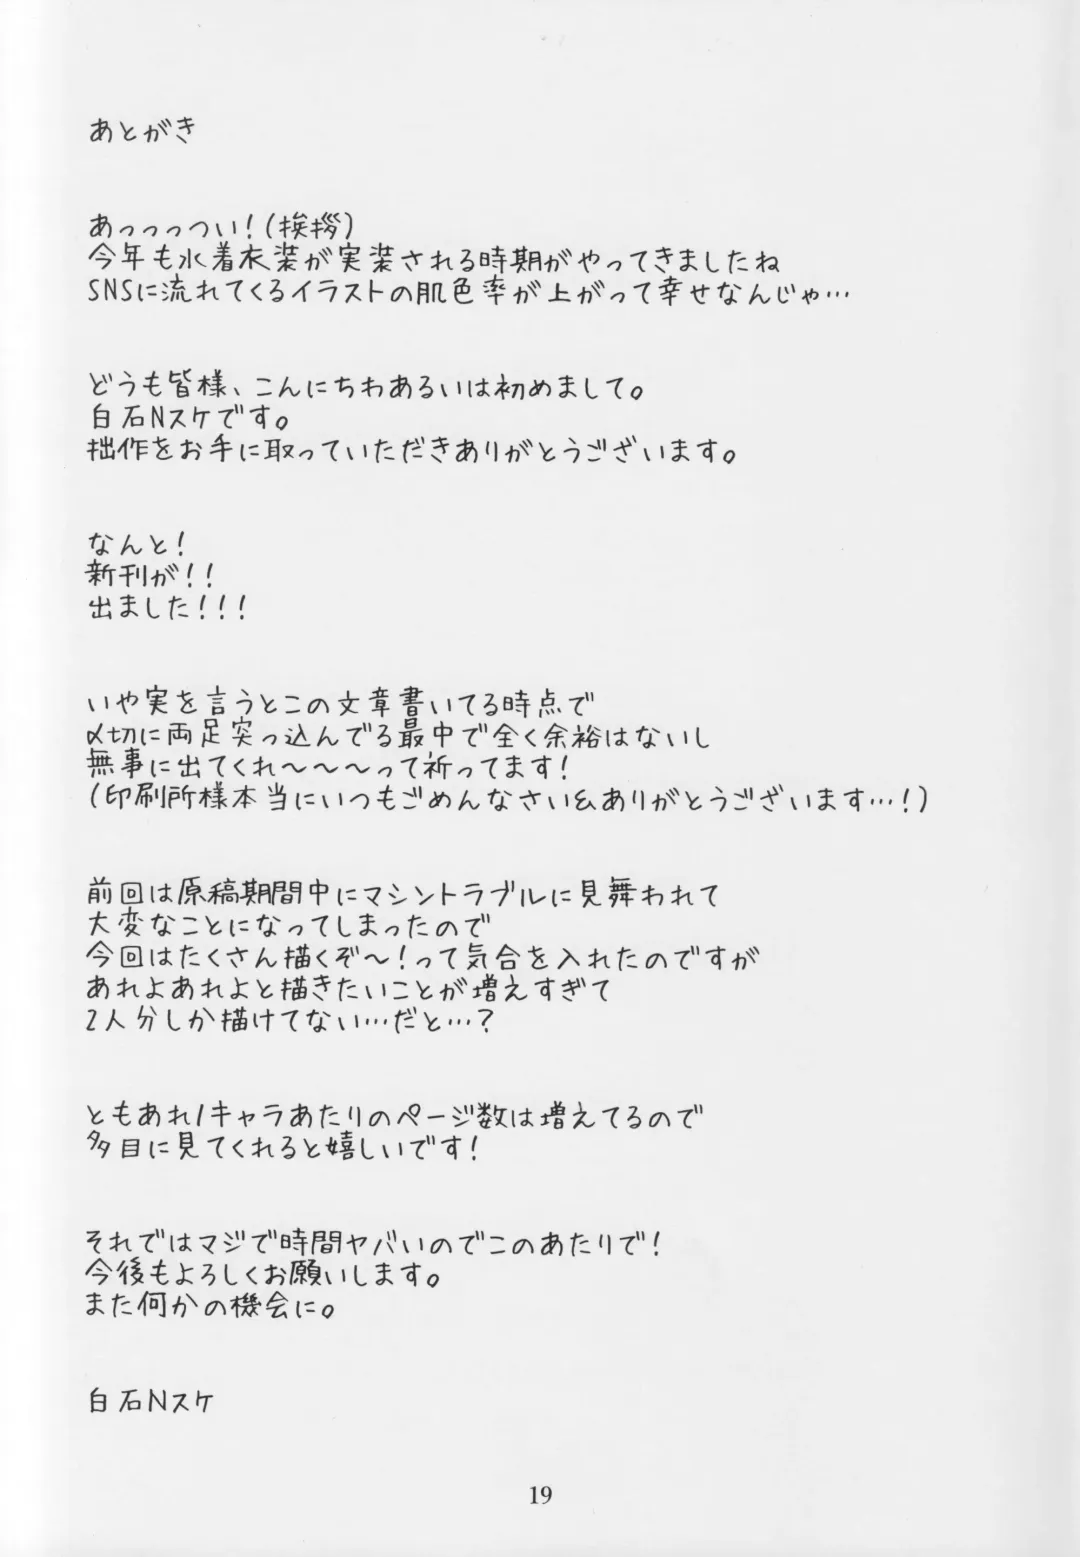 あとがき
あっっっつい！(挨拶)
今年も水着衣装が実装される時期がやってきましたね
SNSに流れてくるイラストの肌色率が上がって幸せなんじゃ…
どうも皆様、こんにちわあるいは初めまして。
白石Nスケです。
拙作をお手に取っていただきありがとうございます。
なんと！
新刊が！！
出ました！！！
いや実を言うとこの文章書いてる時点で
〆切に両足突っ込んでる最中で全く余裕はないし
無事に出てくれ～～～って祈ってます！
(印刷所様本当にいつもごめんなさい&ありがとうございます…！)
前回は原稿期間中にマシントラブルに見舞われて
大変なことになってしまったので
今回はたくさん描くぞ～！って気合を入れたのですが
あれよあれよと描きたいことが増えすぎて
2人分しか描けてない…だと…？
ともあれ1キャラあたりのページ数は増えてるので
多目に見てくれると嬉しいです！
それではマジで時間ヤバいのでこのあたりで！
今後もよろしくお願いします。
また何かの機会に。
白石Nスケ
19